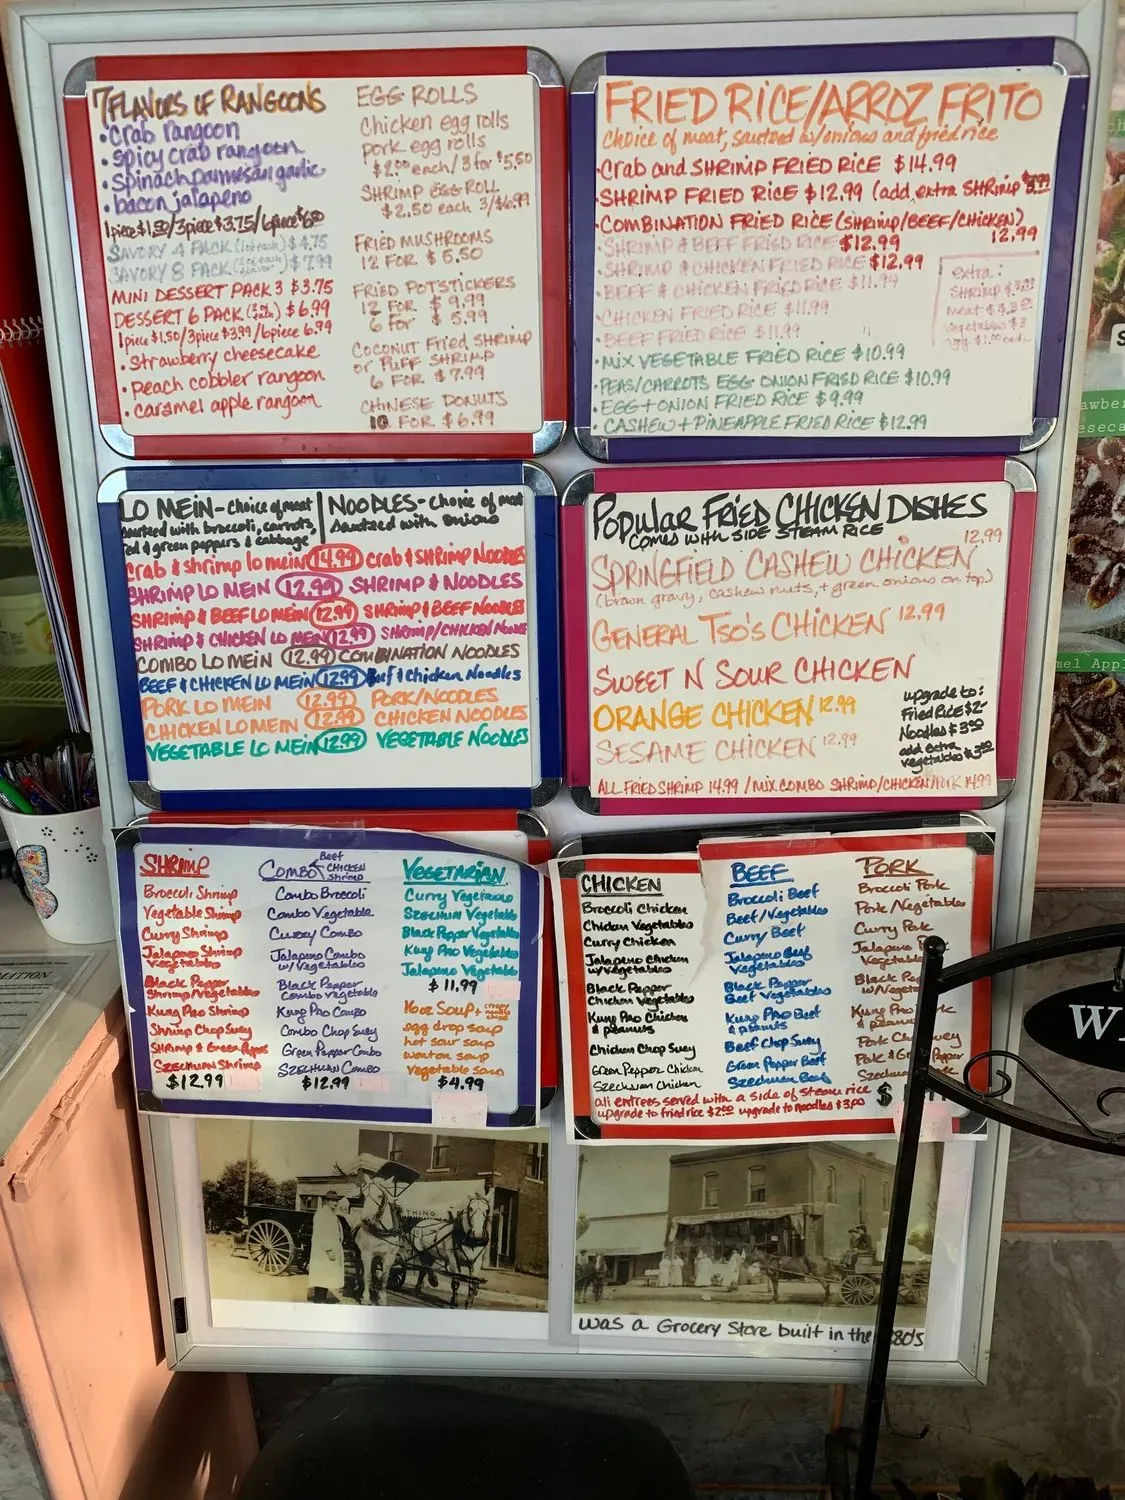 7 FLAVORS OF RANGOONS
• crab rangoon
• spicy crab rangoon
• Spinach parmesan garlic
• bacon jalapeno
1 piece $1.50/3 piece $3.75/6 piece $
SAVORY 4 PACK (1 of each) $4.75
SAVORY 8 PACK $7.99
MINI DESSERT PACK 3 $3.75
DESSERT 6 PACK $6.99
1 piece $1.50/3 piece $3.99/6 piece 6.99
• Strawberry cheesecake
• peach cobbler rangoon
• caramel apple rangoon
EGG ROLLS
Chicken egg rolls
pork egg rolls
$2.00 each/3 for $5.50
SHRIMP EGG ROLL
$2.50 each 3/$6.99
FRIED MUSHROOMS
12 FOR $5.50
FRIED POTSTICKERS
12 FOR $9.99
6 for $5.99
COCONUT Fried SHRIMP
or PUFF SHRIMP
6 FOR $7.99
CHINESE DONUTS
10 FOR $6.99
FRIED RICE/ARROZ FRITO
Choice of meat, sauteed w/onions and fried rice
• Crab and SHRIMP FRIED RICE $14.99
• SHRIMP FRIED RICE $12.99 (add extra SHRimp
• COMBINATION FRIED RICE (SHRimp/BEEF/CHICKEN)
12.99
• SHRIMP & BEEF FRIED RICE $12.99
• SHRIMP & CHICKEN FRIED RICE $12.99
• BEEF & CHICKEN FRIED RICE $11.99
• CHICKEN FRIED RICE $11.99
• BEEF FRIED RICE $11.99
• MIX VEGETABLE FRIED RICE $10.99
• PEAS/CARROTS EGG ONION FRIED RICE $10.99
• EGG + ONION FRIED RICE $9.99
• CASHEW + PINEAPPLE FRIED RICE $12.99
extra:
SHRimp
meat
vegetables $3
egg $1.00 each
LO MEIN - choice of meat
sauteed with broccoli, carrots,
red & green peppers & cabbage
NOODLES - choice of meat
Sauteed with onions
crab & shrimp lo mein 14.99 crab & SHRimp NOODLES
SHRIMP LO MEIN 12.99 SHRIMP & NOODLES
SHRIMP & BEEF LO MEIN 12.99 SHRimp & BEEF NOODLES
SHRIMP & CHICKEN LO MEIN 12.99 SHRIMP/CHICKEN NOODLES
COMBO LO MEIN 12.99 COMBINATION NOODLES
BEEF & CHICKEN LO MEIN 12.99 Beef & Chicken Noodles
PORK LO MEIN 12.99 PORK/NOODLES
CHICKEN LO MEIN 12.99 CHICKEN NOODLES
VEGETABLE LO MEIN 12.99 VEGETABLE NOODLES
POPULAR FRIED CHICKEN DISHES
COMES WITH SIDE STEAM RICE
12.99
SPRINGFIELD CASHEW CHICKEN
(brown gravy, cashew nuts, + green onions on top)
GENERAL TSO'S CHICKEN 12.99
SWEET N SOUR CHICKEN
ORANGE CHICKEN 12.99
SESAME CHICKEN 12.99
upgrade to:
Fried Rice $2
Noodles $3.00
add extra
vegetables $3.00
ALL FRIED SHRIMP 14.99 / MIX COMBO SHRIMP/CHICKEN/PORK 14.99
SHRIMP
Broccoli Shrimp
Vegetable Shrimp
Curry Shrimp
Jalapeno Shrimp
Vegetables
Black Pepper
Shrimp/Vegetables
Kung Pao Shrimp
Shrimp Chop Suey
Shrimp & Green Pepper
Szechuan Shrimp
$12.99
COMBO Beef CHICKEN Shrimp
Combo Broccoli
Combo Vegetable
Curry Combo
Jalapeno Combo
w/Vegetables
Black Pepper
Combo Vegetable
Kung Pao Combo
Combo Chop Suey
Green Pepper Combo
Szechuan Combo
$12.99
VEGETARIAN
Curry Vegetable
Szechuan Vegetable
Black Pepper Vegetable
Kung Pao Vegetable
Jalapeno Vegetable
$11.99
16oz Soup +
egg drop soup
hot sour soup
wonton soup
vegetable soup
$4.99
CHICKEN
Broccoli Chicken
Chicken Vegetables
Curry Chicken
Jalapeno Chicken
w/Vegetables
Black Pepper
Chicken Vegetables
Kung Pao Chicken
& peanuts
Chicken Chop Suey
Green Pepper Chicken
Szechuan Chicken
BEEF
Broccoli Beef
Beef/Vegetables
Curry Beef
Jalapeno Beef
Vegetables
Black Pepper
Beef Vegetables
Kung Pao Beef
& peanuts
Beef Chop Suey
Green Pepper Beef
Szechuan Beef
PORK
Broccoli Pork
Pork/Vegetables
Curry Pork
Jalapeno
Vegetable
Black
w/Veget
Kung Pao
& peanu
Pork Ch Suey
Pork & G Pepper
Szechu
all entrees served with a side of steam rice $
upgrade to fried rice $2.00 upgrade to noodles $3.00
THING.
was a Grocery Store built in the 80's
MATION
W